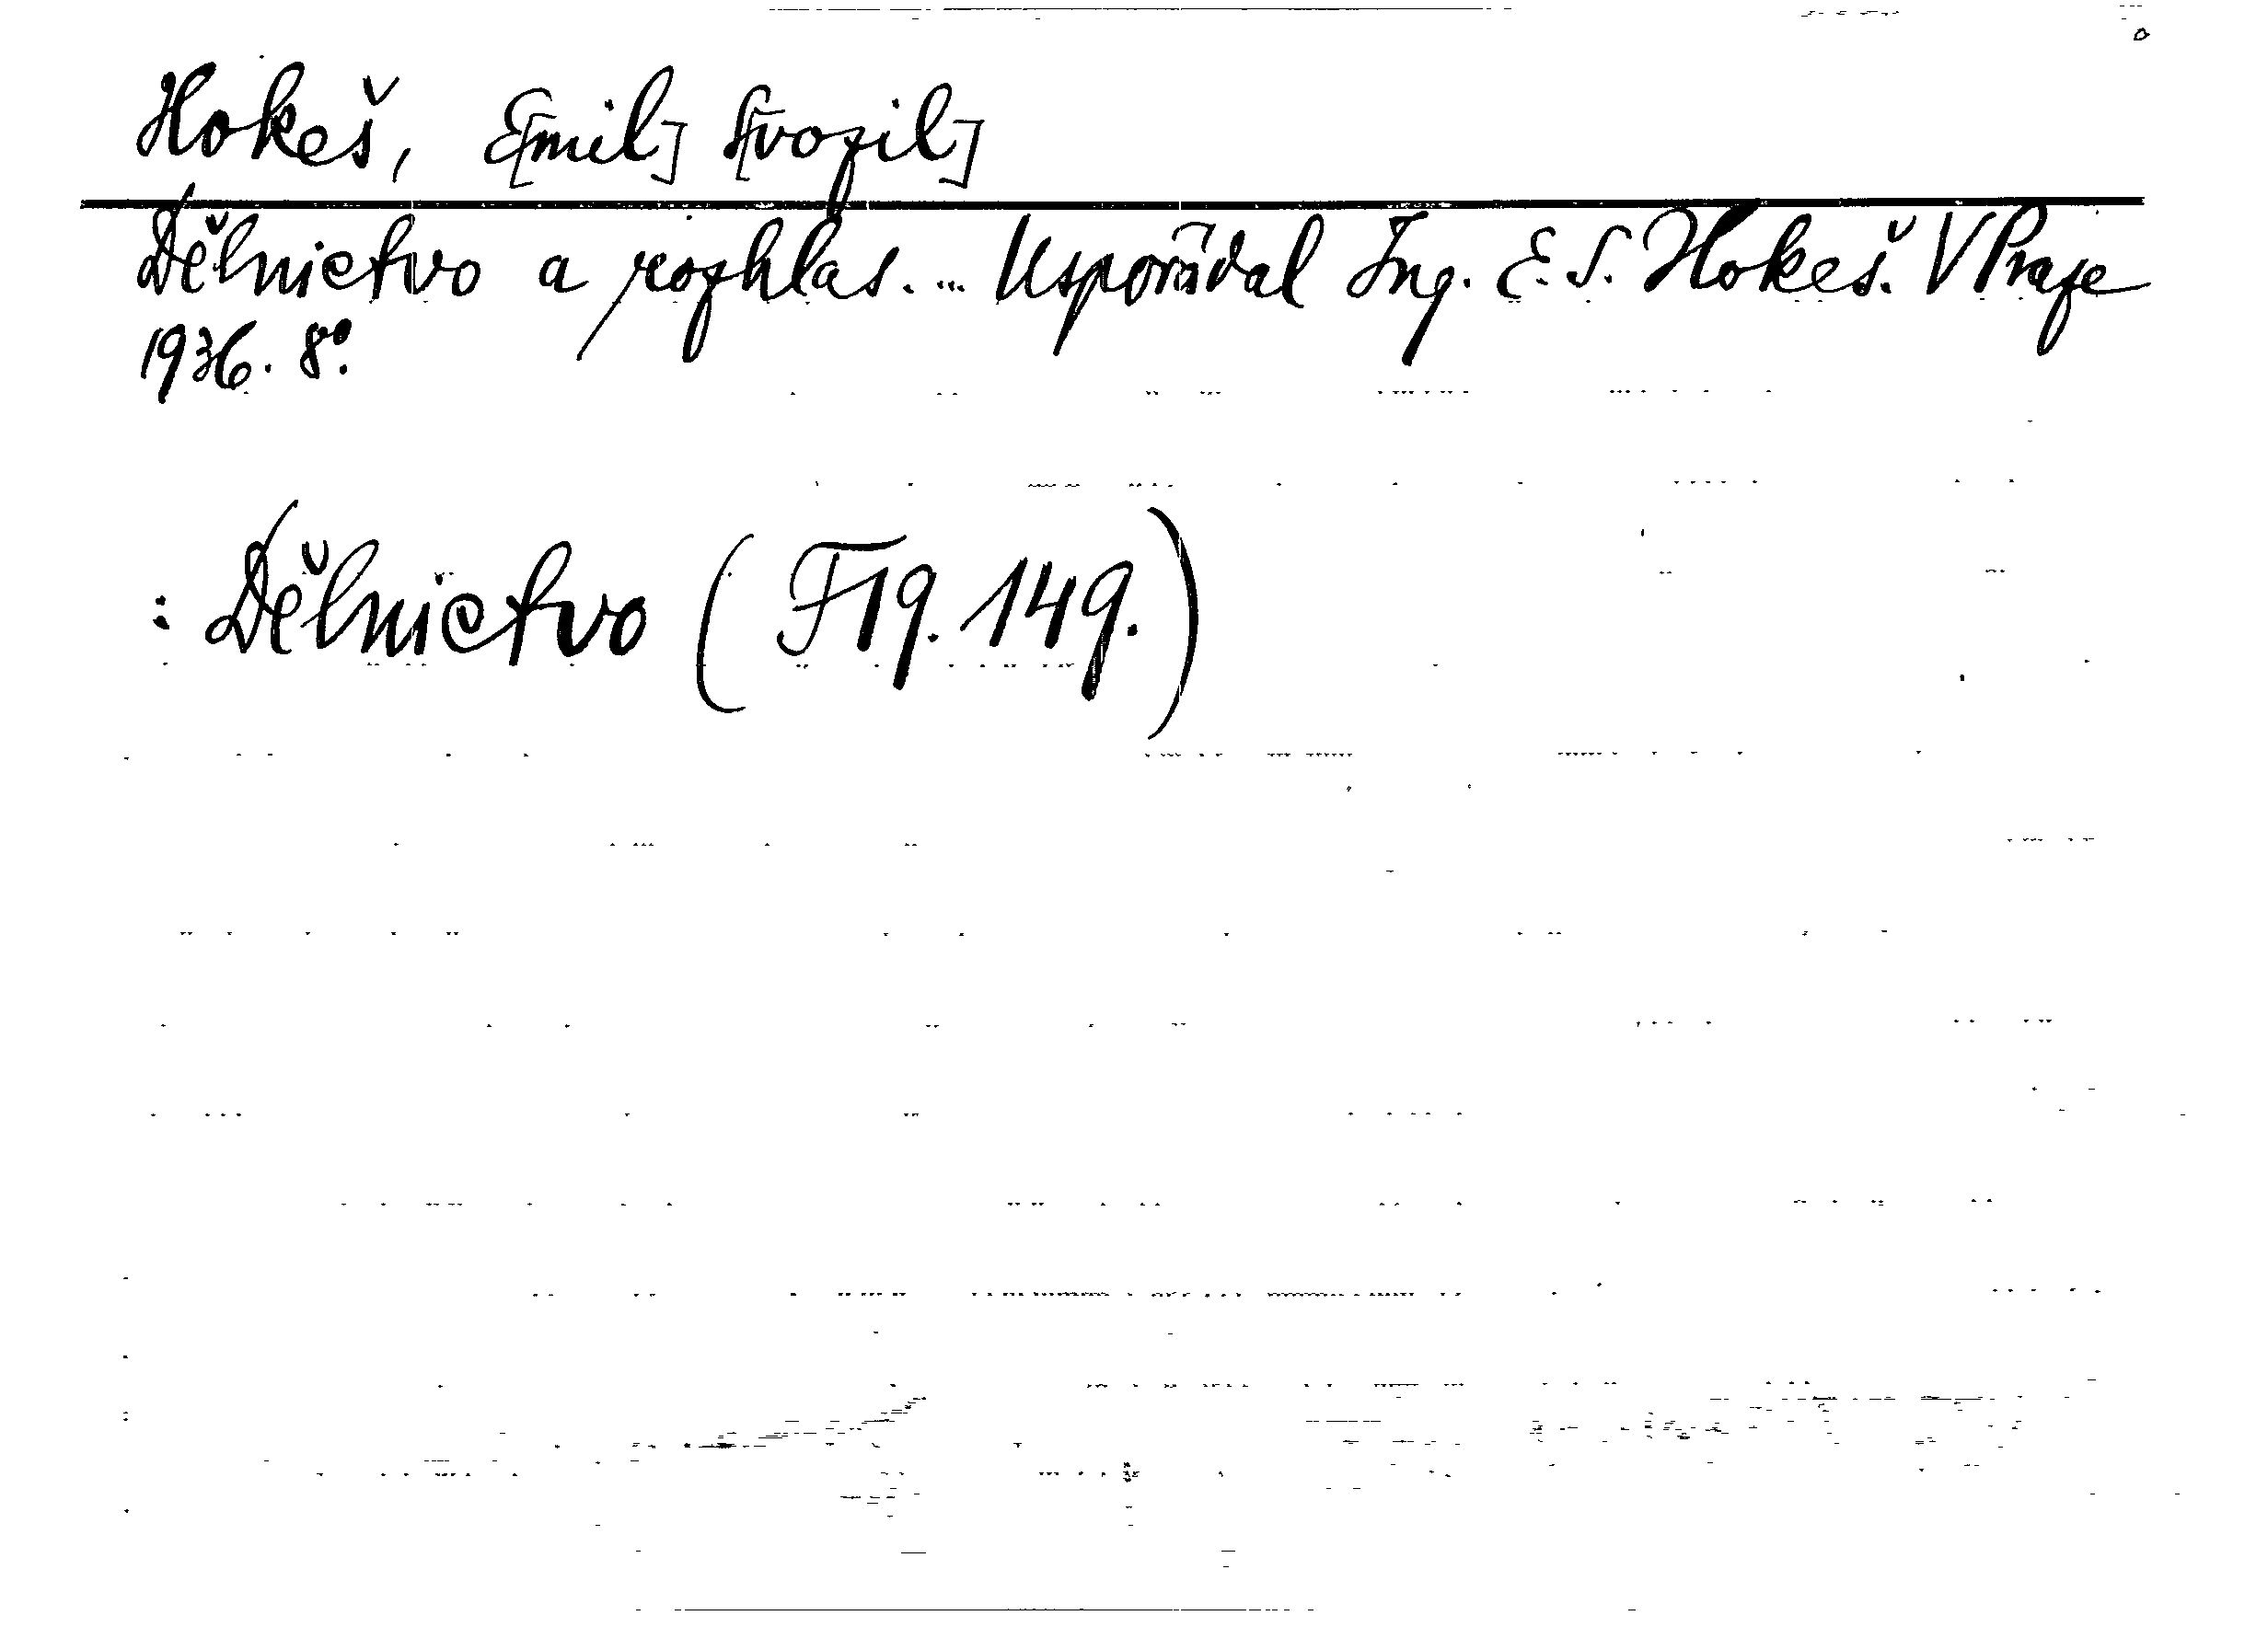 Hokeš, E[mil] S[vozil]
Dělnictvo a rozhlas. ... Uspořádal Ing. E. S. Hokeš. V Praze
1936. 8°.
: Dělnictvo (F 19. 149.)